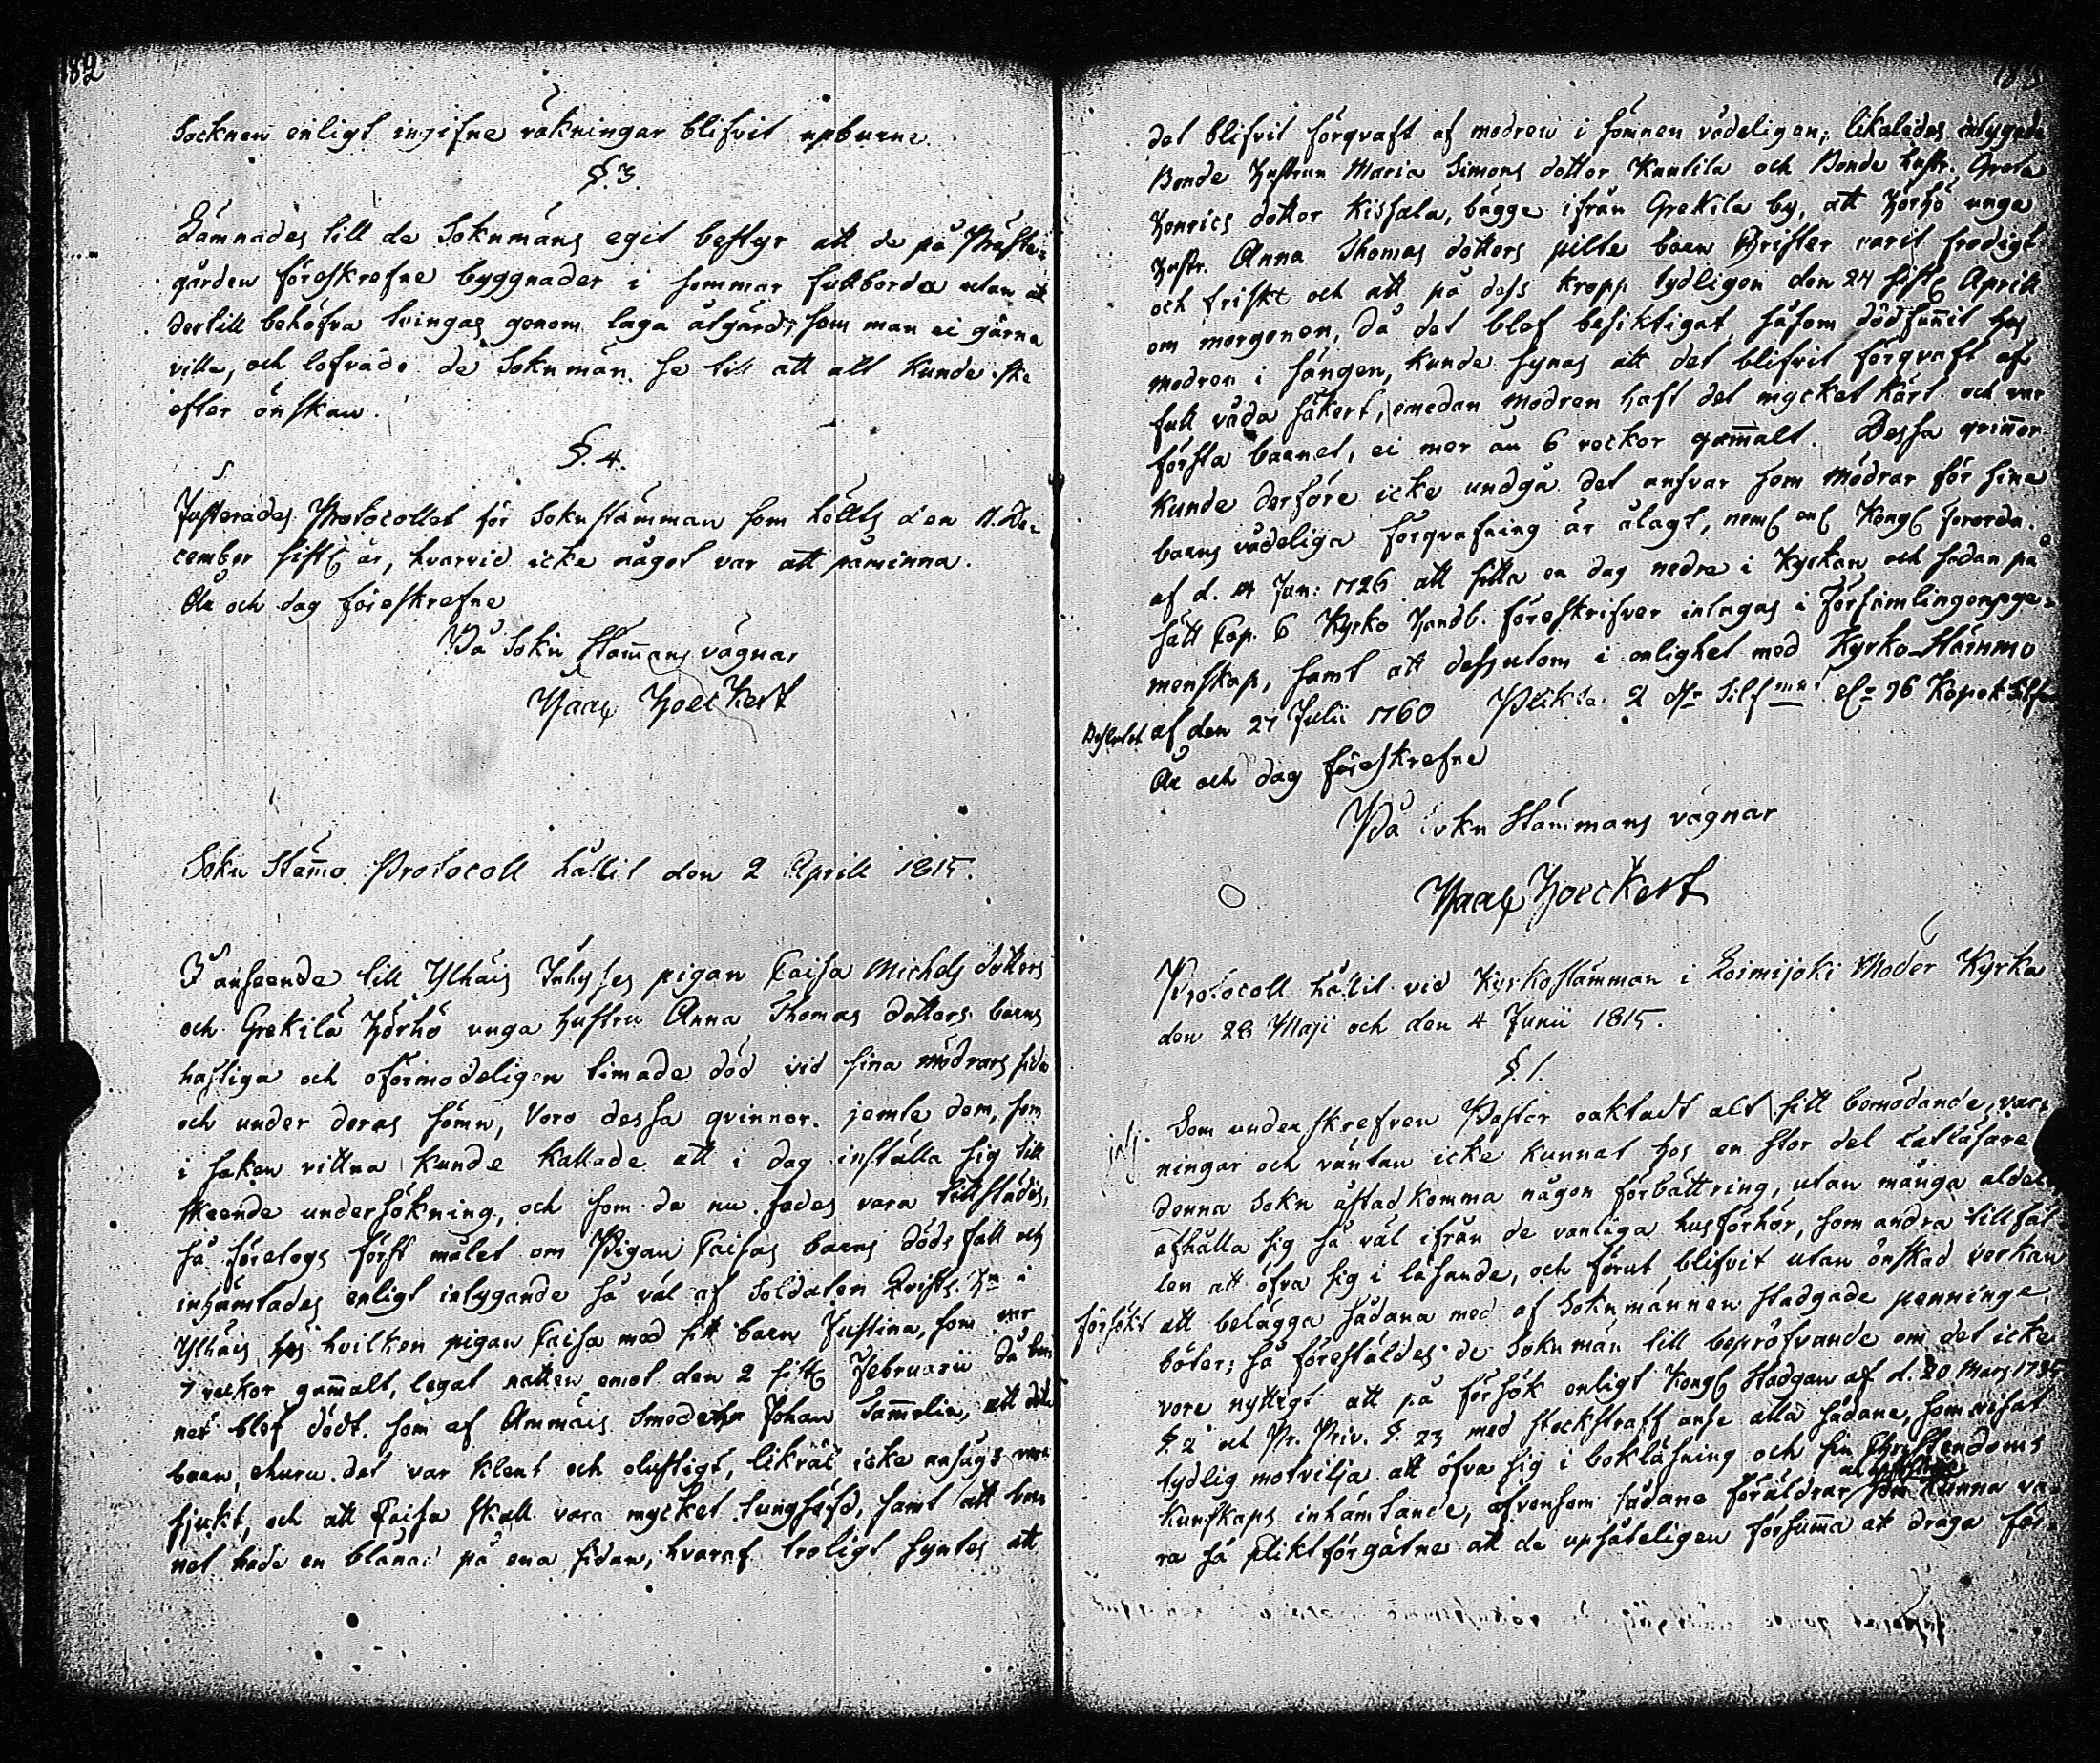 182
Socknen enligt ingifne räkningar blifvit upburne.
§. 3.
Lämnades till de Soknmäns egit bestyr att de på Präste-
gården föreskrefne byggnader i sommar fullborda utan at
dertill behöfva tvingas genom laga åtgärd, som man ei gärna
ville, och lofvade de Soknmän se till att alt kunde ske
efter önskan.
§. 4.
Justerades Protocollet för Soknstämman som hölts den 11. De-
cember sistl. år, hvarvid icke något var att påminna.
År och dag föreskrefne
På Sokn Stam̄ans vägnar
Isaac Hoeckert
Sokn Stäm̄o Protocoll hållit den 2 Aprill 1815.
I anseende till Ylhäis Inhyses pigan Caisa Michels dotters
och Grekilä Hörhö unga hustru Anna Thomas dotters barns
hastiga och oförmodeligen timade död vid sina mödrars sida
och under deras sömn, voro dessa qvinnor jemte dem, som
i saken vittna kunde kallade att i dag inställa sig till
skeende undersökning, och som de nu sades vara tillstädes,
så företogs först målet om Pigan Caisas barns dödsfall och
inhämtades enligt intygande så väl af Soldaten Qvists Hu i
Ylhäis hos hvilken pigan Caisa med sitt barn Justina, som var
7 veckor gam̄alt, legat natten emot den 2 sistl. Februarii då bar-
net blef dödt, som af Ammäis Smeden Johan Sam̄elin, att detta
barn, ehuru det var klent och olustigt, likväl icke ansågs vara
sjukt, och att Caisa skall vara mycket tungsöfd, samt att bar-
net hade en blånad på ena sidan, hvaraf troligt syntes att
det blifvit förqvaft af modren i sömnen vådeligen; likaledes intygade
Bonde Hustrun Maria Simons dotter Knutila och Bonde hustr. Greta
Henrics dotter Kissala, bägge ifrån Grekila by, att Hörhö unge
hustr. Anna Thomas dotters pilte barn Christer varit frodigt
och friskt och att på dess kropp tydligen den 24 sistl. Aprill
om morgonen, då det blef besiktigat, såsom dödfun̄it hos
modren i sängen, kunde synas att det blifvit förqvaft af
full våda säkert, emedan modren haft det mycket kärt och var
första barnet, ei mer än 6 veckor gam̄alt. Dessa qvin̄or
kunde derföre icke undgå det ansvar som Mödrar för sine
barns vådeliga förqvafning är ålagt, neml. enl. Kongl. förordn.
af d. 14 Jan: 1726 att sitta en dag nedre i Kyrkan och sedan på
sätt Cap. 6 Kyrko Handb. föreskrifver intagas i Församlingens ge-
menskap, samt att dessutom i enlighet med Kyrko-Stämmo
Beslutet af den 27 Julii 1760 Plikta 2 dr Silfmt elr 96 Kopek Silfver
År och dag föreskrefne
På Sokn Stämmans vägnar
Isaac Hoeckert
Protocoll hållit vid Kyrkostämman i Loimijoki Moder Kyrka
den 28 Maji och den 4 Junii 1815.
§. 1.
Som underskrefven Pastor oaktadt alt sitt bemödande, var-
ningar och väntan icke kunnat hos en stor del latläsare i
denna Sokn åstadkomma någon förbättring, utan många aldeles
afhålla sig så väl ifrån de vanliga husförhör, som andra tillfäl-
len att öfva sig i läsande, och förut blifvit utan önskad verkan
försökt att belägga sådana med af Soknmännen stadgade penninge
böter; så föreställdes de Soknmän till bepröfvande om det icke
vore nyttigt att på försök enligt Kongl. Stadgan af d. 20 Mars 1735
§. 2 och Pr. Priv. §. 23 med stockstraff anse alla sådane, som visat
tydlig motvilja att öfva sig i bokläsning och sin Christendoms
kunskaps inhämtande, äfvensom sådane föräldrar som kunna va-
ra så pliktförgätne att de upsåteligen försum̄a att draga för-